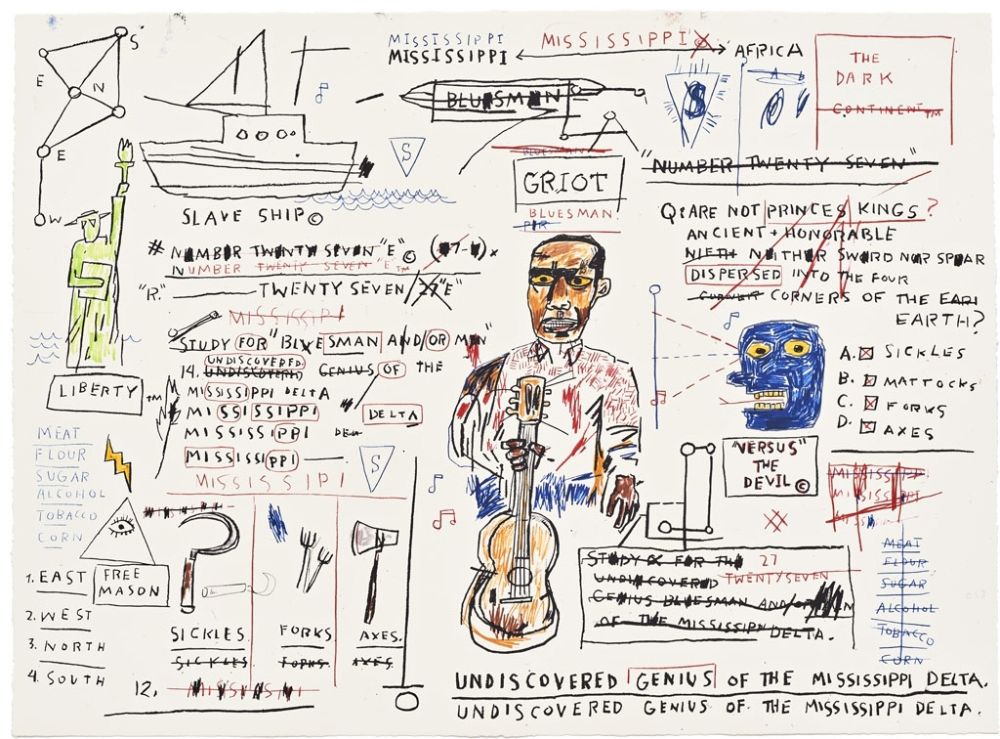 S
E
N
E
W
MISSISSIPPI
MISSISSIPPI
MISSISSIPPI
AFRICA
THE
DARK
CONTINENT™
BLUESMEN
S
S
GRIOT
BLUESMAN.
"NUMBER TWENTY SEVEN"
SLAVE SHIP©
# NUMBER TWENTY SEVEN "E"©
NUMBER TWENTY SEVEN "E™
"R." TWENTY SEVEN/27"E"
MISSISSIPI
STUDY FOR "BLUESMAN AND/OR MEN"
UNDISCOVERED
14. UNDISCOVERED GENIUS OF THE
MISSISSIPPI DELTA
MISSISSIPPI DELTA
MISSISSIPPI DEL
MISSISSIPPI
MISSISSIPI
S
LIBERTY™
MEAT
FLOUR
SUGAR
ALCOHOL
TOBACCO
CORN
FREE
MASON
1. EAST
2. WEST
3. NORTH
4. SOUTH
SICKLES
FORKS
AXES.
SICKLES
FORKS
AXES
12.
Q: ARE NOT PRINCES KINGS?
ANCIENT + HONORABLE
NIETH NEITHER SWORD NOR SPEAR
DISPERSED INTO THE FOUR
CORNER CORNERS OF THE EARI
EARTH?
A. SICKLES
B. MATTOCKS
C. FORKS
D. AXES
"VERSUS"
THE
DEVIL©
MISSISSIPPI
MISSISSIPPI
MEAT
FLOUR
SUGAR
ALCOHOL
TOBACCO
CORN
STUDY FOR THE 27
UNDISCOVERED TWENTYSEVEN
GENIUS BLUESMAN AND/OR MEN
OF THE MISSISSIPPI DELTA.
UNDISCOVERED GENIUS OF THE MISSISSIPPI DELTA.
UNDISCOVERED GENIUS OF THE MISSISSIPPI DELTA.